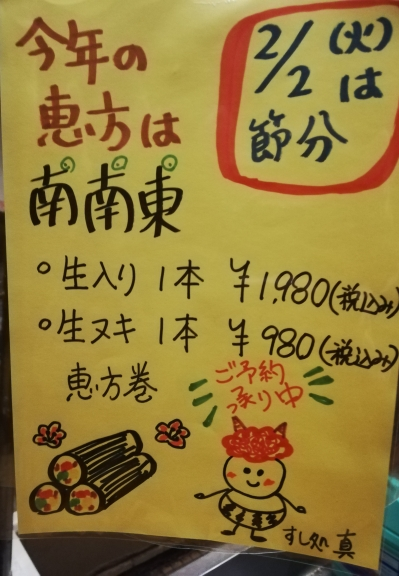 今年の
恵方は
南南東
2/2(火)
は
節分
○生入り 1本 ¥1,980(税込み)
○生ヌキ 1本 ¥980(税込み)
恵方巻
ご予約
承り中
すし処 真